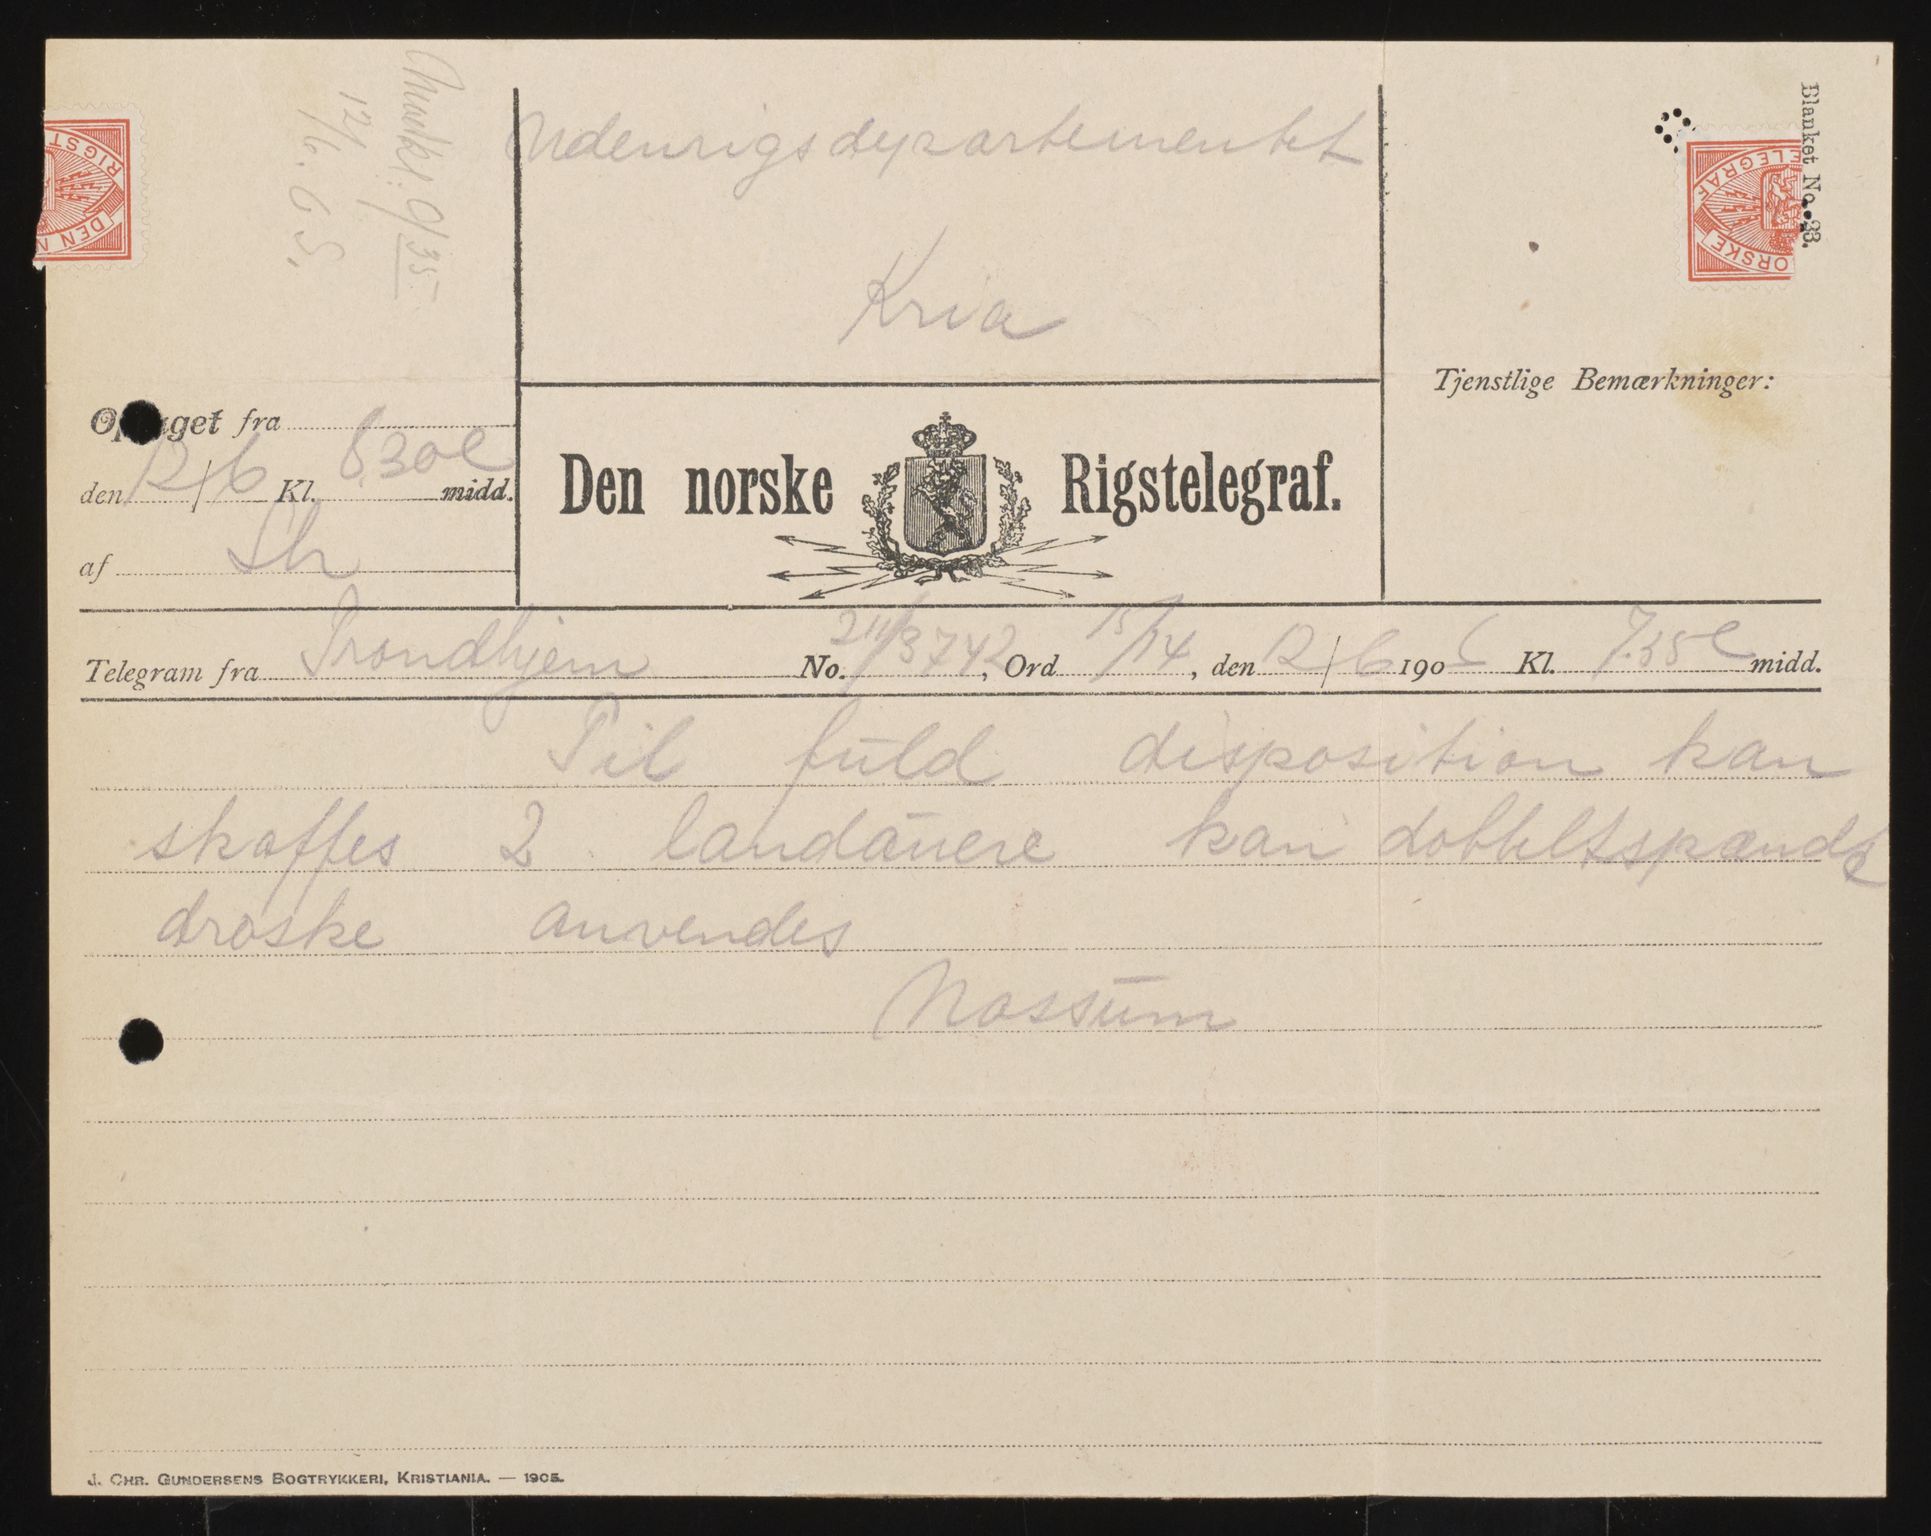 Udenrigsdepartementet
Kria
Blanket No. 23.
RIGST
DEN N
ELEGRAF
ORSKE
Tjenstlige Bemærkninger:
Optaget fra
den 12/6 Kl. 8.30 e midd.
af
Den norske Rigstelegraf.
Telegram fra Trondhjem No. 211/3742, Ord 15/14, den 12/6 1906 Kl. 7.35 e midd.
Til fuld disposition kan
skaffes 2 landauere kan dobbeltspændt
droske anvendes
Mossum
J. CHR. GUNDERSENS BOGTRYKKERI, KRISTIANIA. — 1905.